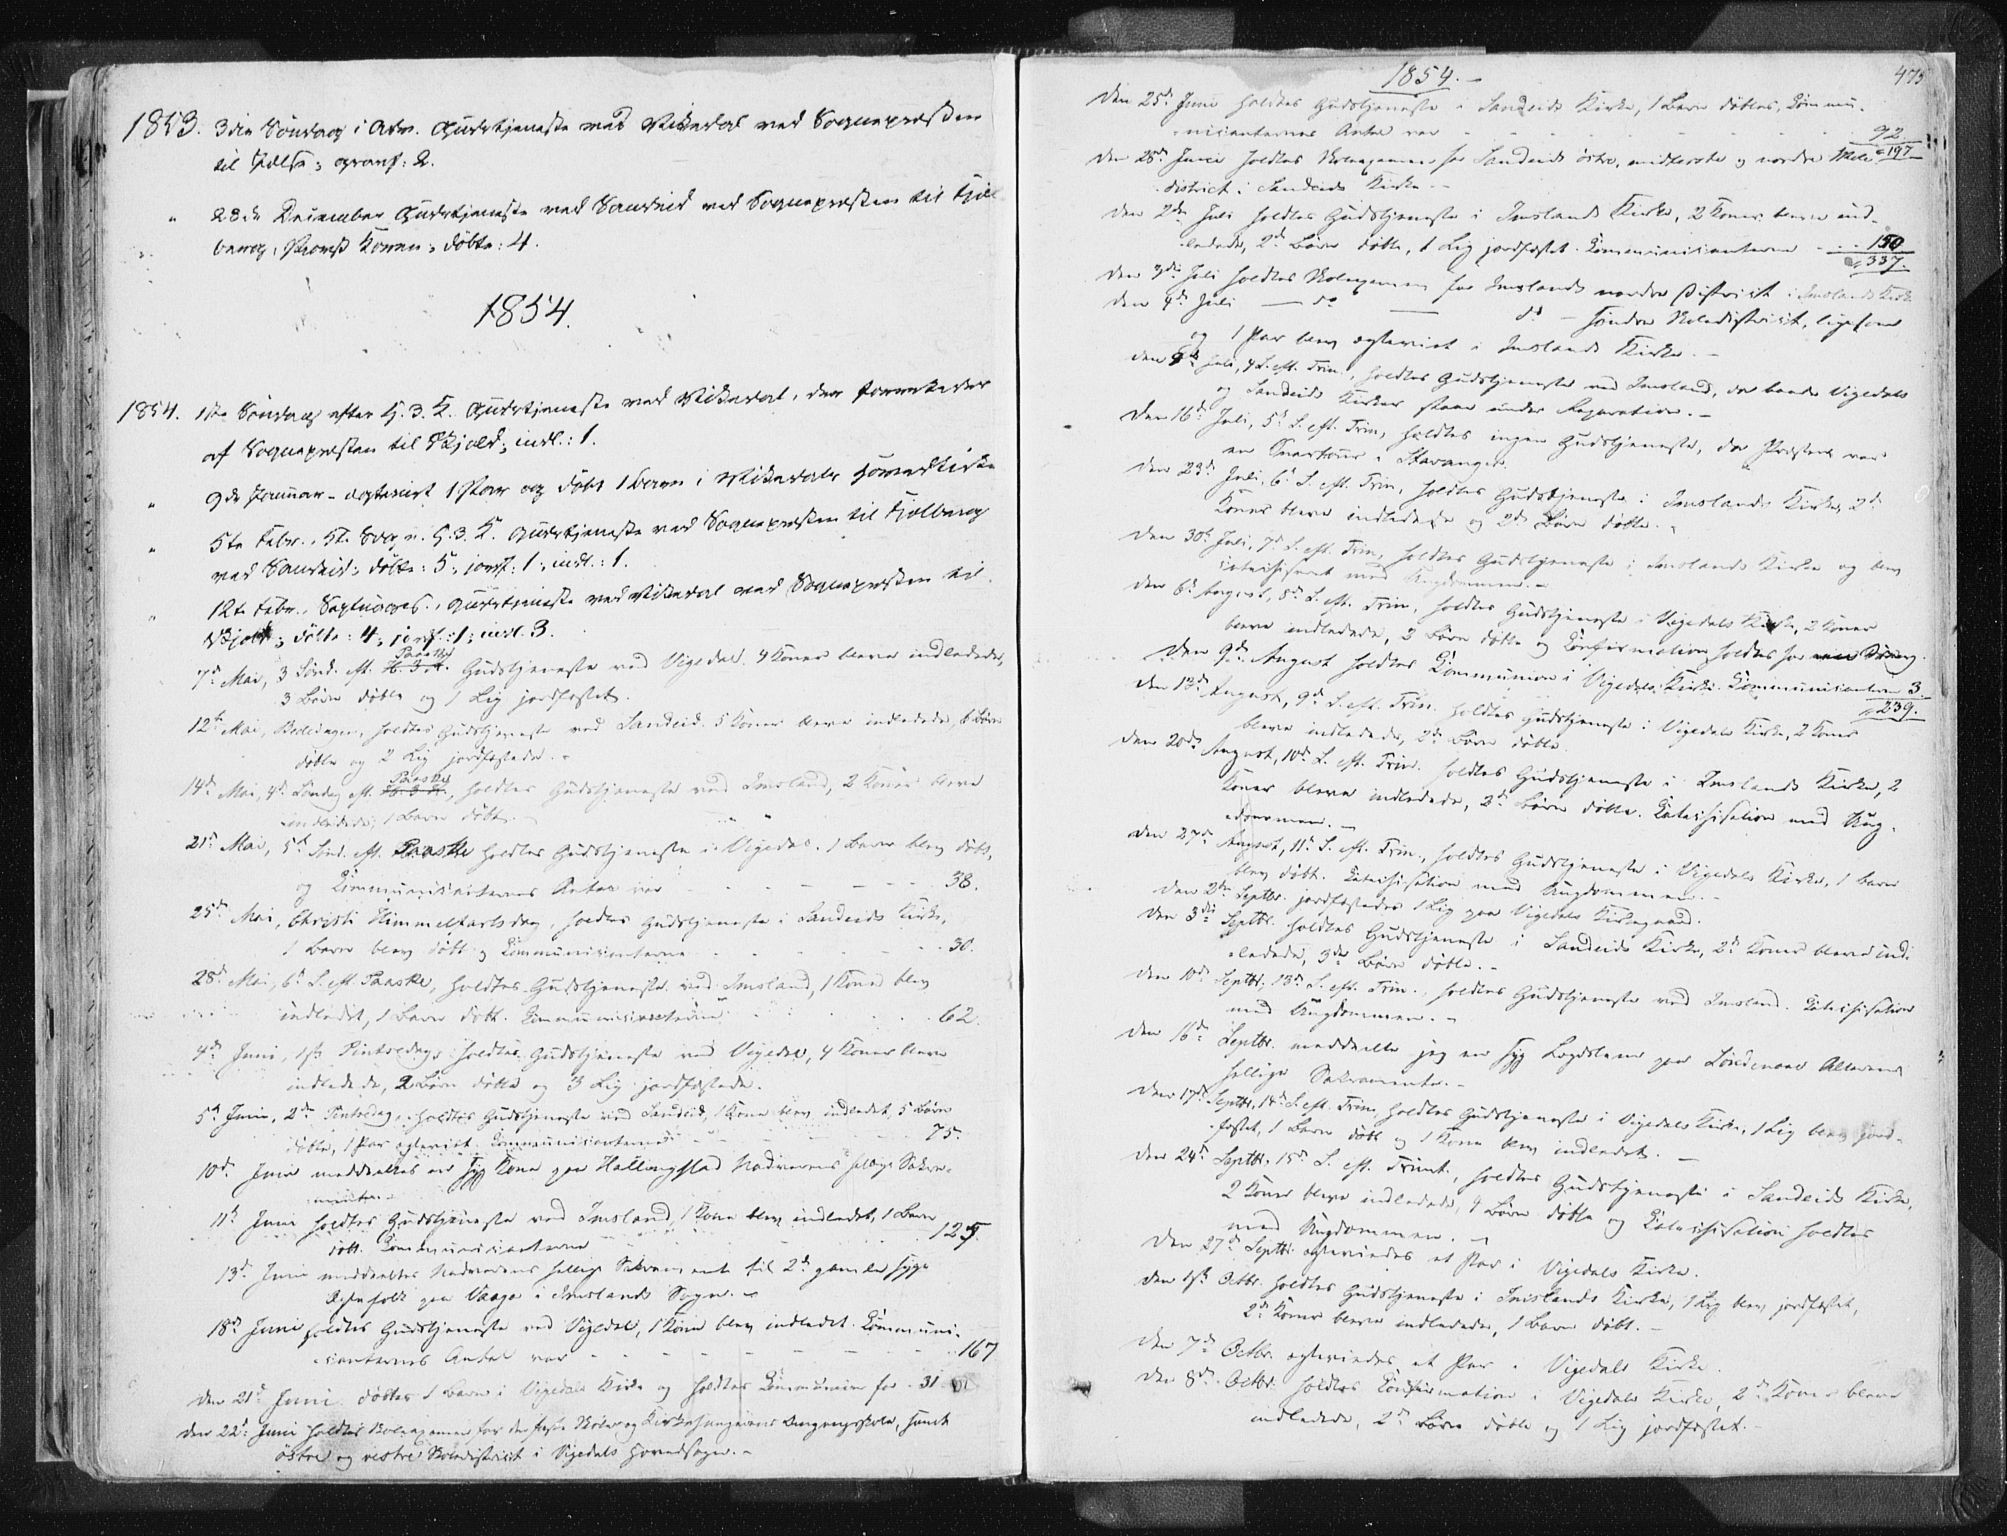 1853. 3die Søndag i Adv. Gudstjeneste ved Vikedal ved Sognepræsten
til
" 28de December Gudstjeneste ved Sandeid ved Sognepræsten til Fjeld-
berg, døbte: 4.
1854.
1854. 1ste Søndag efter H. 3. K. Gudstjeneste ved Vikedal, der forrettedes
af Sognepræsten til Skjold; indl.: 1.
" 9de Januar - egteviet 1 Par og døbt 1 Barn i Vikedals Hovedkirke
" 5te Febr., 5te Sdg e. H. 3. K. Gudstjeneste ved Sognepræsten til Fjelberg
ved Sandeid; døbte: 5; jordf.: 1; indl.: 1.
" 12te Febr., Septuages., Gudstjeneste ved Vikedal ved Sognepræsten til
Skjold; døbte: 4; jordf.: 1; indl. 3.
7de Mai, 3 Sønd. eft. H. 3 K. Paaske Gudstjeneste ved Vigedal. 4 Koner bleve indledede,
3 Børn døbte og 1 Lig jordfæstet.
12te Mai, Bededagen, holdtes Gudstjeneste ved Sandeid. 5 Koner bleve indledede, 6 Børn
døbte og 2 Lig jordfæstede. -
14de Mai, 4de Søndag eft. H. 3 K. Paaske, holdtes Gudstjeneste ved Imsland, 2 Koner bleve
indledede, 1 Barn døbt. -
21de Mai, 5te Sønd. eft. Paaske holdtes Gudstjeneste i Vigedal. 1 Barn blev døbt,
og Communicanternes Antal var - - - - 38.
25de Mai, Christi Himmelfartsdag, holdtes Gudstjeneste i Sandeids Kirke,
1 Barn blev døbt og Communicanterne - - - 30.
28de Mai, 6te S. eft. Paaske, holdtes Gudstjeneste ved Imsland, 1 Kone blev
indledet, 1 Barn døbt. Communicanterne - - - 62.
4de Juni, 1ste Pintsedag, holdtes Gudstjeneste ved Vigedal, 4 Koner bleve
indledede, 2 Børn døbte og 3 Lig jordfæstede.
5te Juni, 2den Pintsedag, holdtes Gudstjeneste ved Sandeid, 1 Kone blev indledet, 5 Børn
døbte, 1 Par egteviet. Communicanterne - - - 75.
10de Juni meddeeltes en syg Kone paa Hallingstad Nadverens hellige Sakra-
mente. -
11te Juni holdtes Gudstjeneste ved Imsland, 1 Kone blev indledet, 1 Barn
døbt. Communicanterne - - - 125.
13de Juni meddeeltes Nadverens hellige Sakramente til 2de gamle syge
Egtefolk paa Vaage i Imslands Sogn. -
18de Juni holdtes Gudstjeneste ved Vigedal, 1 Kone blev indledet. Communi-
canternes Antal var - - - - 167
Den 21de Juni døbtes 1 Barn i Vigedals Kirke og holdtes Communion for 31
Den 22de Juni holdtes Skoleexamen for den faste Skole og Kirkesangerens Omgangsskole, samt
østre og vestre Skoledistrict i Vigedals Hovedsogn. -
1854. - 475
Den 25de Juni holdtes Gudstjeneste i Sandeids Kirke, 1 Barn døbtes, Commu-
nicanternes Antal var - - - - 92.
Den 28de Juni holdtes Skoleexamen for Sandeids østre, midterste og nordre Skole- 197
district i Sandeids Kirke. -
Den 2den Juli holdtes Gudstjeneste i Imslands Kirke, 2 Koner bleve ind-
ledede, 2de Børn døbte, 1 Lig jordfæstet. Communicanterne - - 150
337.
Den 3die Juli holdtes Skoleexamen for Imslands nordre District i Imslands Kirke
Den 4de Juli — do — do - søndre Skoledistrict, ligesom
og 1 Par blev egteviet i Imslands Kirke. -
Den 9de Juli, 4 S. eft. Trin., holdtes Gudstjeneste ved Imsland, da baade Vigedals
og Sandeids Kirker staae under Reparation. -
Den 16de Juli, 5te S. eft. Trin., holdtes ingen Gudstjeneste, da Præsten var
en Snartour i Stavanger.
Den 23de Juli, 6te S. eft. Trin., holdtes Gudstjeneste i Imslands Kirke, 2de
Koner bleve indledede og 2de Børn døbte. -
Den 30te Juli, 7de S. eft. Trin., holdtes Gudstjeneste i Imslands Kirke og blev
catechiseret med Ungdommen. -
Den 6te August, 8de S. eft. Trin., holdtes Gudstjeneste i Vigedals Kirke, 2 Koner
bleve indledede, 2 Børn døbte og Confirmation holdtes for
Den 9de August holdtes Communion i Vigedals Kirke. Communicanterne 3.
239.
Den 13de August, 9de S. eft. Trin. holdtes Gudstjeneste i Vigedals Kirke, 2 Koner
bleve indledede, 2de Børn døbte.
Den 20de August, 10de S. eft. Trin. holdtes Gudstjeneste i Imslands Kirke, 2
Koner bleve indledede, 2de Børn døbte. Catechisation med Ung-
dommen. -
Den 27de August, 11te S. eft. Trin., holdtes Gudstjeneste i Vigedals Kirke, 1 Barn
blev døbt. Catechisation med Ungdommen. -
Den 2den Septbr. jordfæstedes 1 Lig paa Vigedals Kirkegaard.
Den 3die Septbr. holdtes Gudstjeneste i Sandeids Kirke, 2de Koner bleve ind-
ledede, 3de Børn døbte. -
Den 10de Septbr. 13de S. eft. Trin., holdtes Gudstjeneste ved Imsland. Catechisation
med Ungdommen. -
Den 16de Septbr. meddeelte jeg en syg paa Søndenaa Alterens
hellige Sakramente. -
Den 17de Septbr. 14de S. eft. Trin., holdtes Gudstjeneste i Vigedals Kirke, 1 Lig blev jord-
fæstet, 1 Barn døbt og 1 Kone blev indledet. -
Den 24de Septbr. 15de S. eft. Trinit., holdtes Gudstjeneste i Sandeids Kirke,
2 Koner bleve indledede, 4 Børn døbte og Catechisation holdtes
med Ungdommen. -
Den 27de Septbr. egteviedes et Par i Vigedals Kirke.
Den 1ste Octbr. holdtes Gudstjeneste i Imslands Kirke, 1 Lig blev jordfæstet,
2de Koner bleve indledede, 1 Barn døbt. -
Den 7de Octbr. egteviedes et Par i Vigedals Kirke.
Den 8de Octbr. holdtes Confirmation i Vigedals Kirke, 2de Koner bleve
indledede, 2de Børn døbte og 1 Lig jordfæstet. -